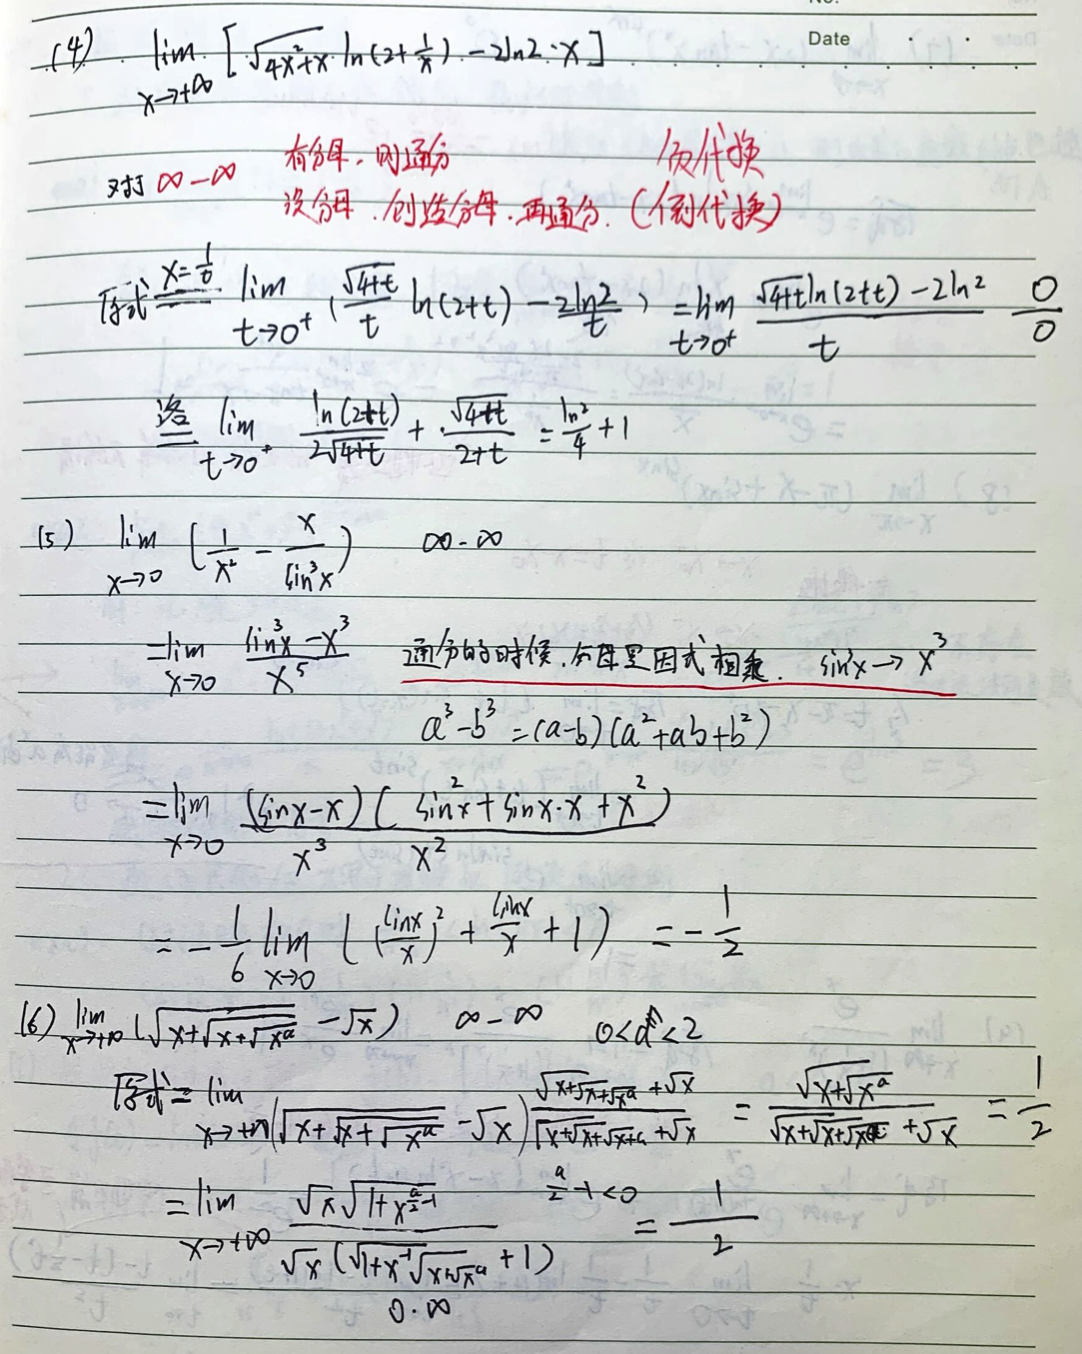 Date
(4) lim x→+∞ [√(4x²+x) ln(2+1/x) -2ln2·x]
对于 ∞-∞ 有分母，则通分 倒代换
没分母，创造分母，再通分．(倒代换)
原式 x=1/t lim t→0⁺ (√(4+t)/t ln(2+t) - 2ln2/t) = lim t→0⁺ (√(4+t) ln(2+t) - 2ln2)/t 0/0
洛 = lim t→0⁺ ln(2+t)/(2√(4+t)) + √(4+t)/(2+t) = ln2/4 + 1
(5) lim x→0 (1/x² - x/sin³x) ∞-∞
= lim x→0 (sin³x - x³)/x⁵ 通分的时候，分母是因式相乘． sin³x → x³
a³-b³ = (a-b)(a²+ab+b²)
= lim x→0 (sinx-x)(sin²x+sinx·x+x²)/(x³ x²)
= -1/6 lim x→0 ((sinx/x)²+sinx/x+1) = -1/2
(6) lim x→+∞ (√(x+√(x+√(x^a))) -√x) ∞-∞ 0<a<2
原式 = lim x→+∞ (√(x+√(x+√(x^a))) -√x) (√(x+√(x+√(x^a))) +√x)/(√(x+√(x+√(x^a))) +√x) = √(x+√(x^a))/(√(x+√(x+√(x^a))) +√x) = 1/2
= lim x→+∞ √x √(1+x^(a/2-1))/(√x (√(1+x⁻¹√(x+√(x^a))) +1)) a/2-1<0 = 1/2
0·∞